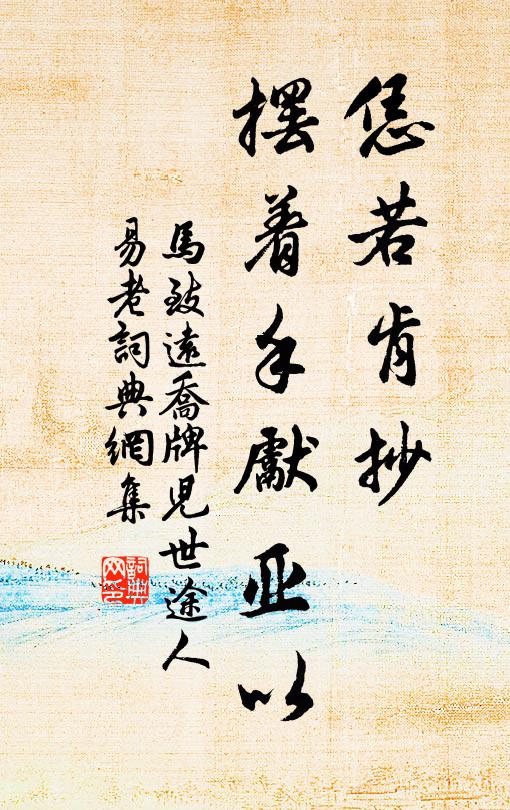 恁若肯抄
摆着手獻亚以
馬致遠喬牌兒世途人
易老詞典網集
詞典